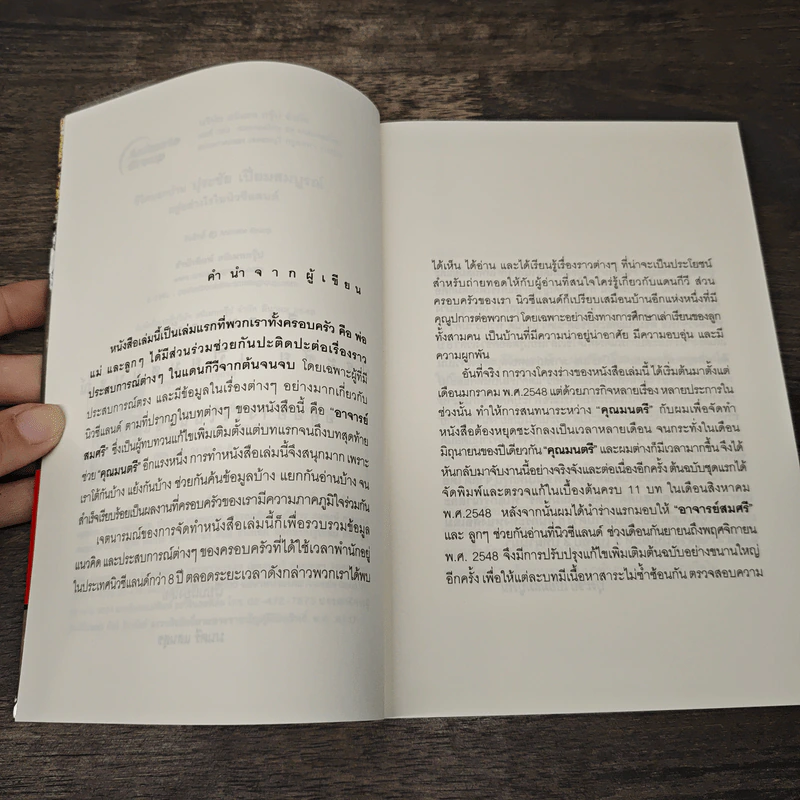 คำนำจากผู้เขียน
หนังสือเล่มนี้เป็นเล่มแรกที่พวกเราทั้งครอบครัว คือ พ่อ
แม่ และลูกๆ ได้มีส่วนร่วมช่วยกันปะติดปะต่อเรื่องราว
ประสบการณ์ต่างๆ ในแดนกีวีจากต้นจนจบ โดยเฉพาะผู้ที่มี
ประสบการณ์ตรง และมีข้อมูลในเรื่องต่างๆ อย่างมากเกี่ยวกับ
นิวซีแลนด์ ตามที่ปรากฏในบทต่างๆ ของหนังสือนี้ คือ "อาจารย์
สมศรี" ซึ่งเป็นผู้ทบทวนแก้ไขเพิ่มเติมตั้งแต่บทแรกจนถึงบทสุดท้าย
ช่วย "คุณมนตรี" อีกแรงหนึ่ง การทำหนังสือเล่มนี้จึงสนุกมาก เพราะ
เราโต้กันบ้าง แย้งกันบ้าง ช่วยกันค้นข้อมูลบ้าง แยกกันอ่านบ้าง จน
สำเร็จเรียบร้อยเป็นผลงานที่ครอบครัวของเรามีความภาคภูมิใจร่วมกัน
เจตนารมณ์ของการจัดทำหนังสือเล่มนี้ก็เพื่อรวบรวมข้อมูล
แนวคิด และประสบการณ์ต่างๆ ของครอบครัวที่ได้ใช้เวลาพำนักอยู่
ในประเทศนิวซีแลนด์กว่า 8 ปี ตลอดระยะเวลาดังกล่าวพวกเราได้พบ
ได้เห็น ได้อ่าน และได้เรียนรู้เรื่องราวต่างๆ ที่น่าจะเป็นประโยชน์
สำหรับถ่ายทอดให้กับผู้อ่านที่สนใจใคร่รู้เกี่ยวกับแดนกีวี ส่วน
ครอบครัวของเรา นิวซีแลนด์ก็เปรียบเสมือนบ้านอีกแห่งหนึ่งที่มี
คุณูปการต่อพวกเรา โดยเฉพาะอย่างยิ่งทางการศึกษาเล่าเรียนของลูก
ทั้งสามคน เป็นบ้านที่มีความน่าอยู่น่าอาศัย มีความอบอุ่น และมี
ความผูกพัน
อันที่จริง การวางโครงร่างของหนังสือเล่มนี้ ได้เริ่มต้นมาตั้งแต่
เดือนมกราคม พ.ศ.2548 แต่ด้วยภารกิจหลายเรื่อง หลายประการใน
ช่วงนั้น ทำให้การสนทนาระหว่าง "คุณมนตรี" กับผมเพื่อจัดทำ
หนังสือต้องหยุดชะงักลงเป็นเวลาหลายเดือน จนกระทั่งในเดือน
มิถุนายนของปีเดียวกัน "คุณมนตรี" และผมต่างก็มีเวลามากขึ้น จึงได้
หันกลับมาจับงานนี้อย่างจริงจังและต่อเนื่องอีกครั้ง ต้นฉบับชุดแรกได้
จัดพิมพ์และตรวจแก้ในเบื้องต้นครบ 11 บท ในเดือนสิงหาคม
พ.ศ.2548 หลังจากนั้นผมได้นำร่างแรกมอบให้ "อาจารย์สมศรี"
และ ลูกๆ ช่วยกันอ่านที่นิวซีแลนด์ ช่วงเดือนกันยายนถึงพฤศจิกายน
พ.ศ. 2548 จึงมีการปรับปรุงแก้ไขเพิ่มเติมต้นฉบับอย่างขนานใหญ่
อีกครั้ง เพื่อให้แต่ละบทมีเนื้อหาสาระไม่ซ้ำซ้อนกัน ตรวจสอบความ